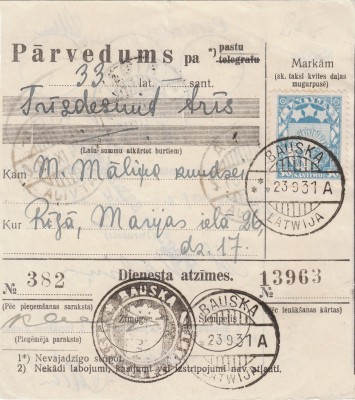 Pārvedums pa *) pastu
telegrafu
Markām
(sk. taksi kvītes daļas
mugurpusē)
33 lat. sant.
Trīsdesmit trīs
(Latu summu atkārtot burtiem)
Kam M. Māliņa kundzei
Kur Rīgā, Marijas ielā 26
dz. 17.
LATVIJA
BAUSKA
23 9 31 A
LATWIJA
№ 382 Dienesta atzīmes. № 13963
(Pēc pieņemšanas saraksta)
(Pēc ienākšanas kārtas)
BAUSKA
Zīmogs
Saņemts
BAUSKA
23 9 31 A
LATWIJA
(Pieņēmēja paraksts)
1*) Nevajadzīgo stripot.
2) Nekādi labojumi, kasījumi vai izstripojumi nav atļauti.